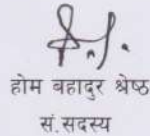 होम बहादुर श्रेष्ठ
सं.सदस्य